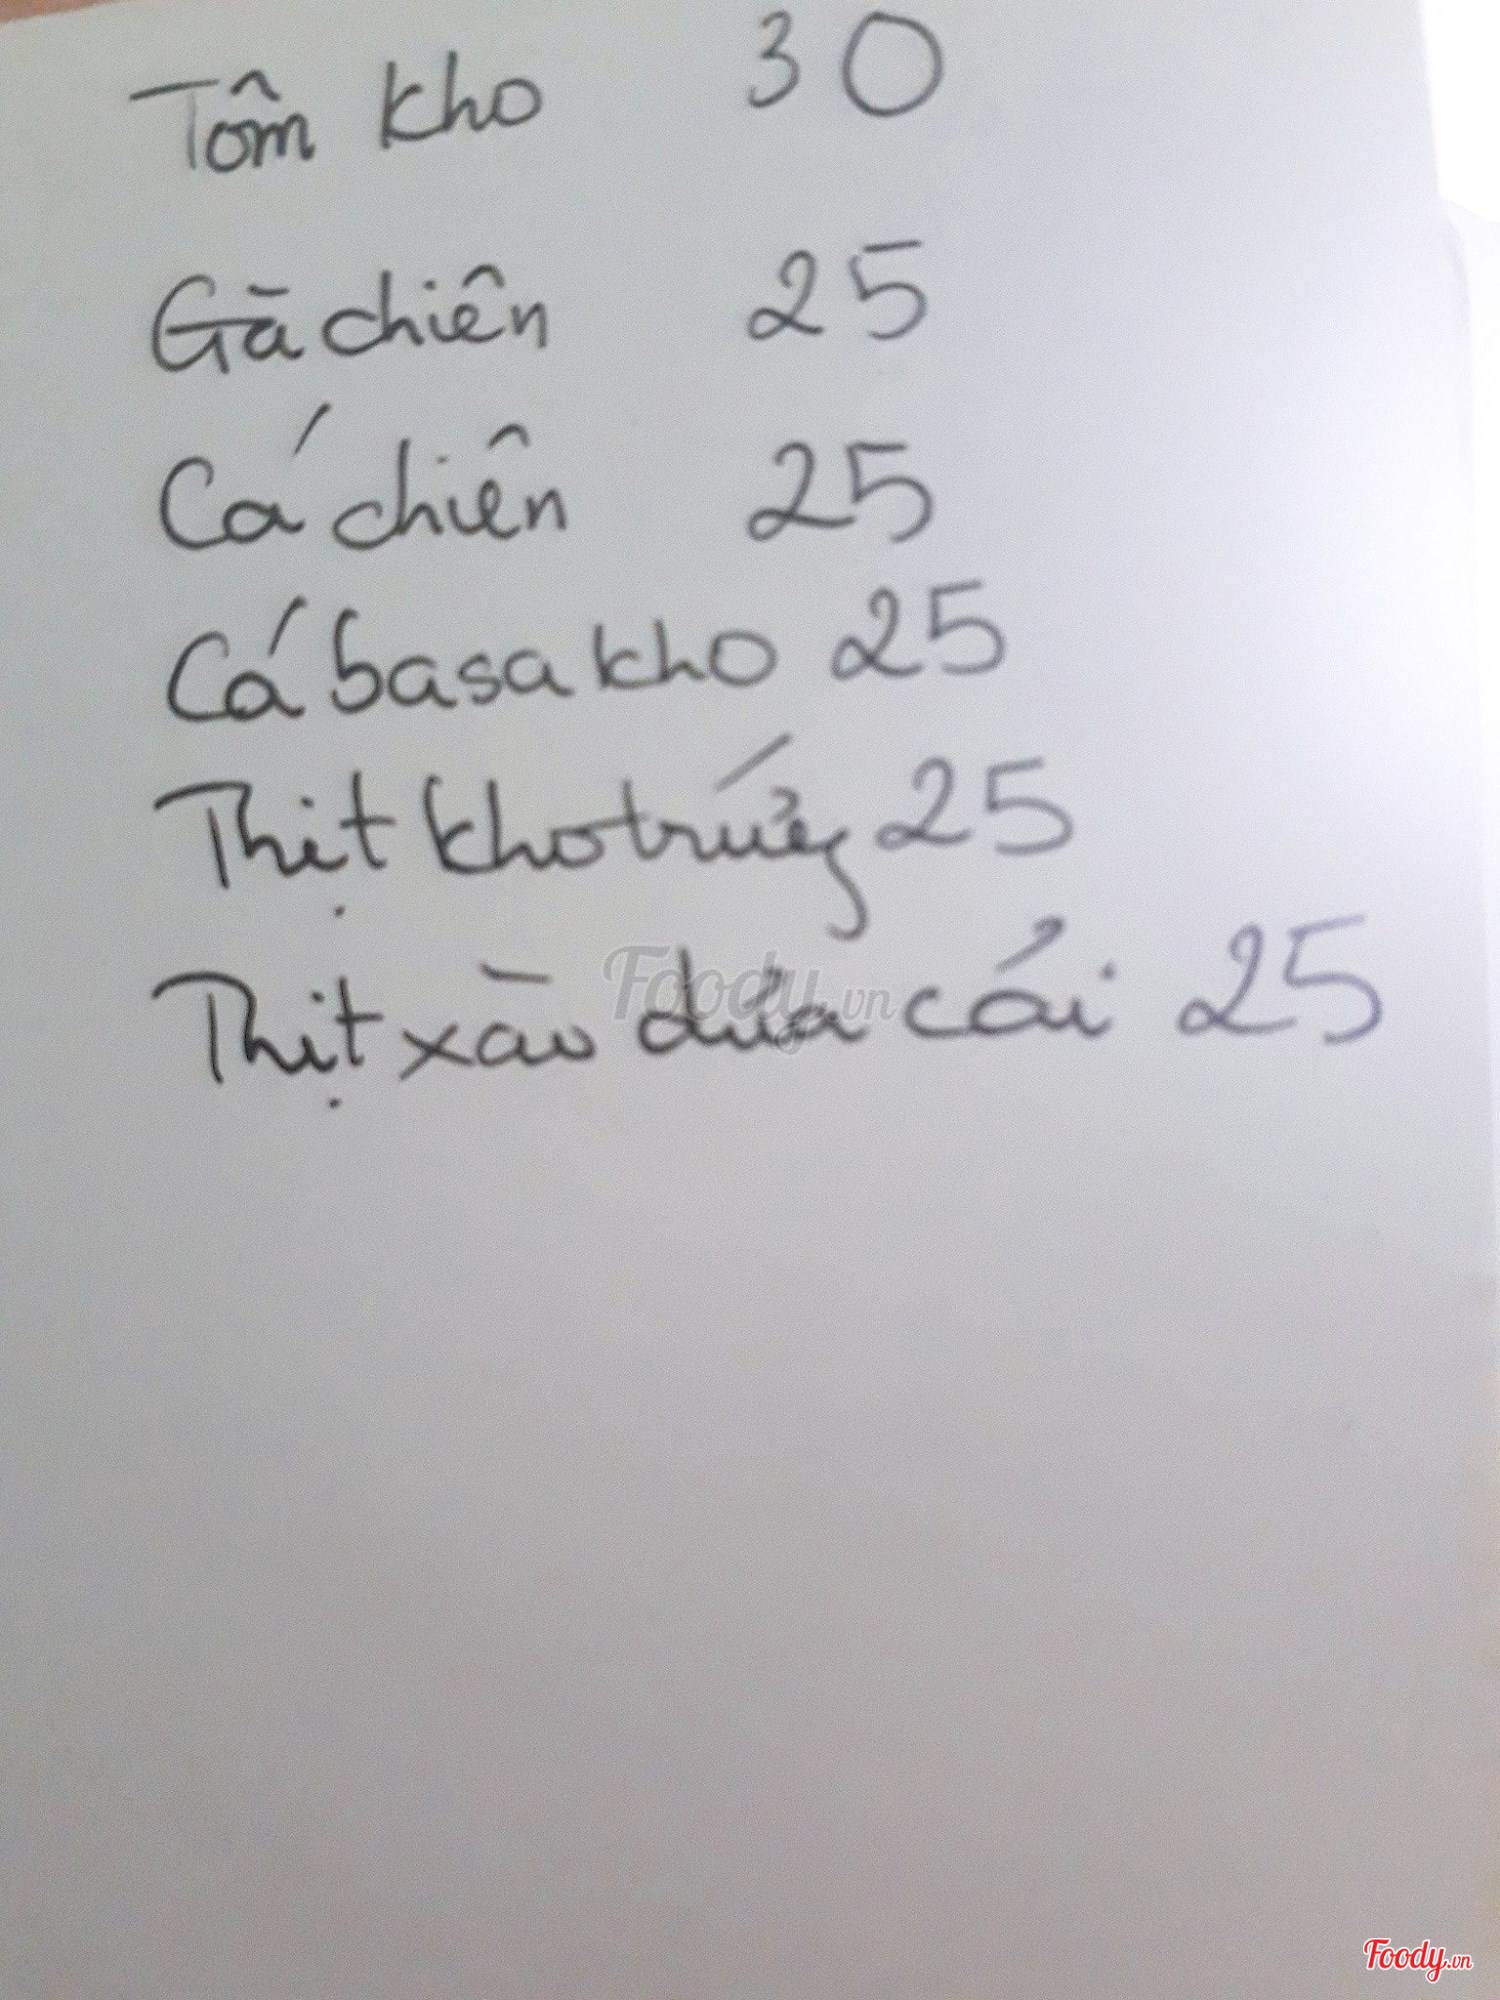 Tôm kho 30
Gà chiên 25
Cá chiên 25
Cá basa kho 25
Thịt kho trứng 25
Thịt xào dưa cải 25
Foody.vn
Foody.vn